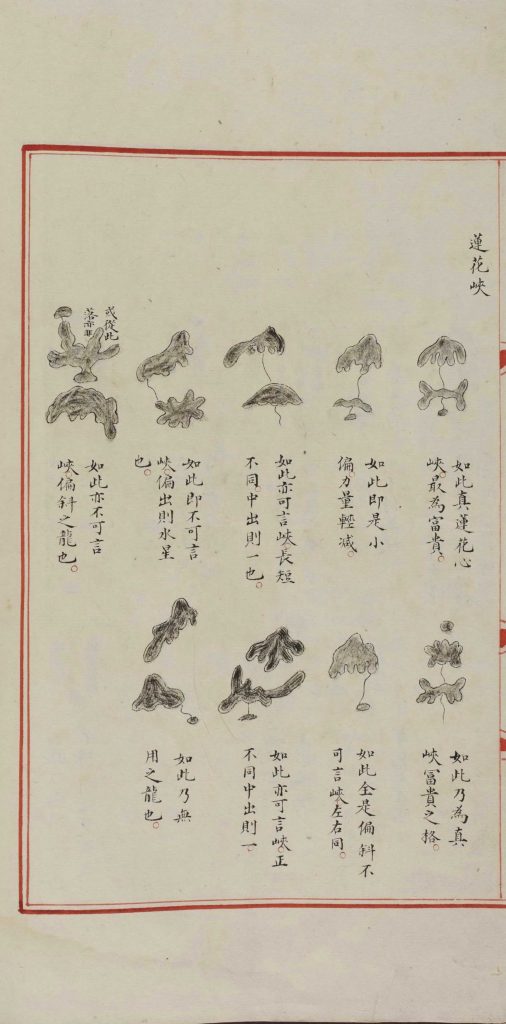 蓮花峽
如此真蓮花心
峽。最為富貴。
如此乃為真
峽富貴之格。
如此即是小
偏。力量輕減。
如此全是偏斜不
可言峽。左右同。
如此亦可言峽長短
不同中出則一也。
如此亦可言峽。正
不同中出則一
如此即不可言
峽偏出則水星
也。
如此乃無
用之龍也。
或從此
落亦非
如此亦不可言
峽。偏斜之龍也。